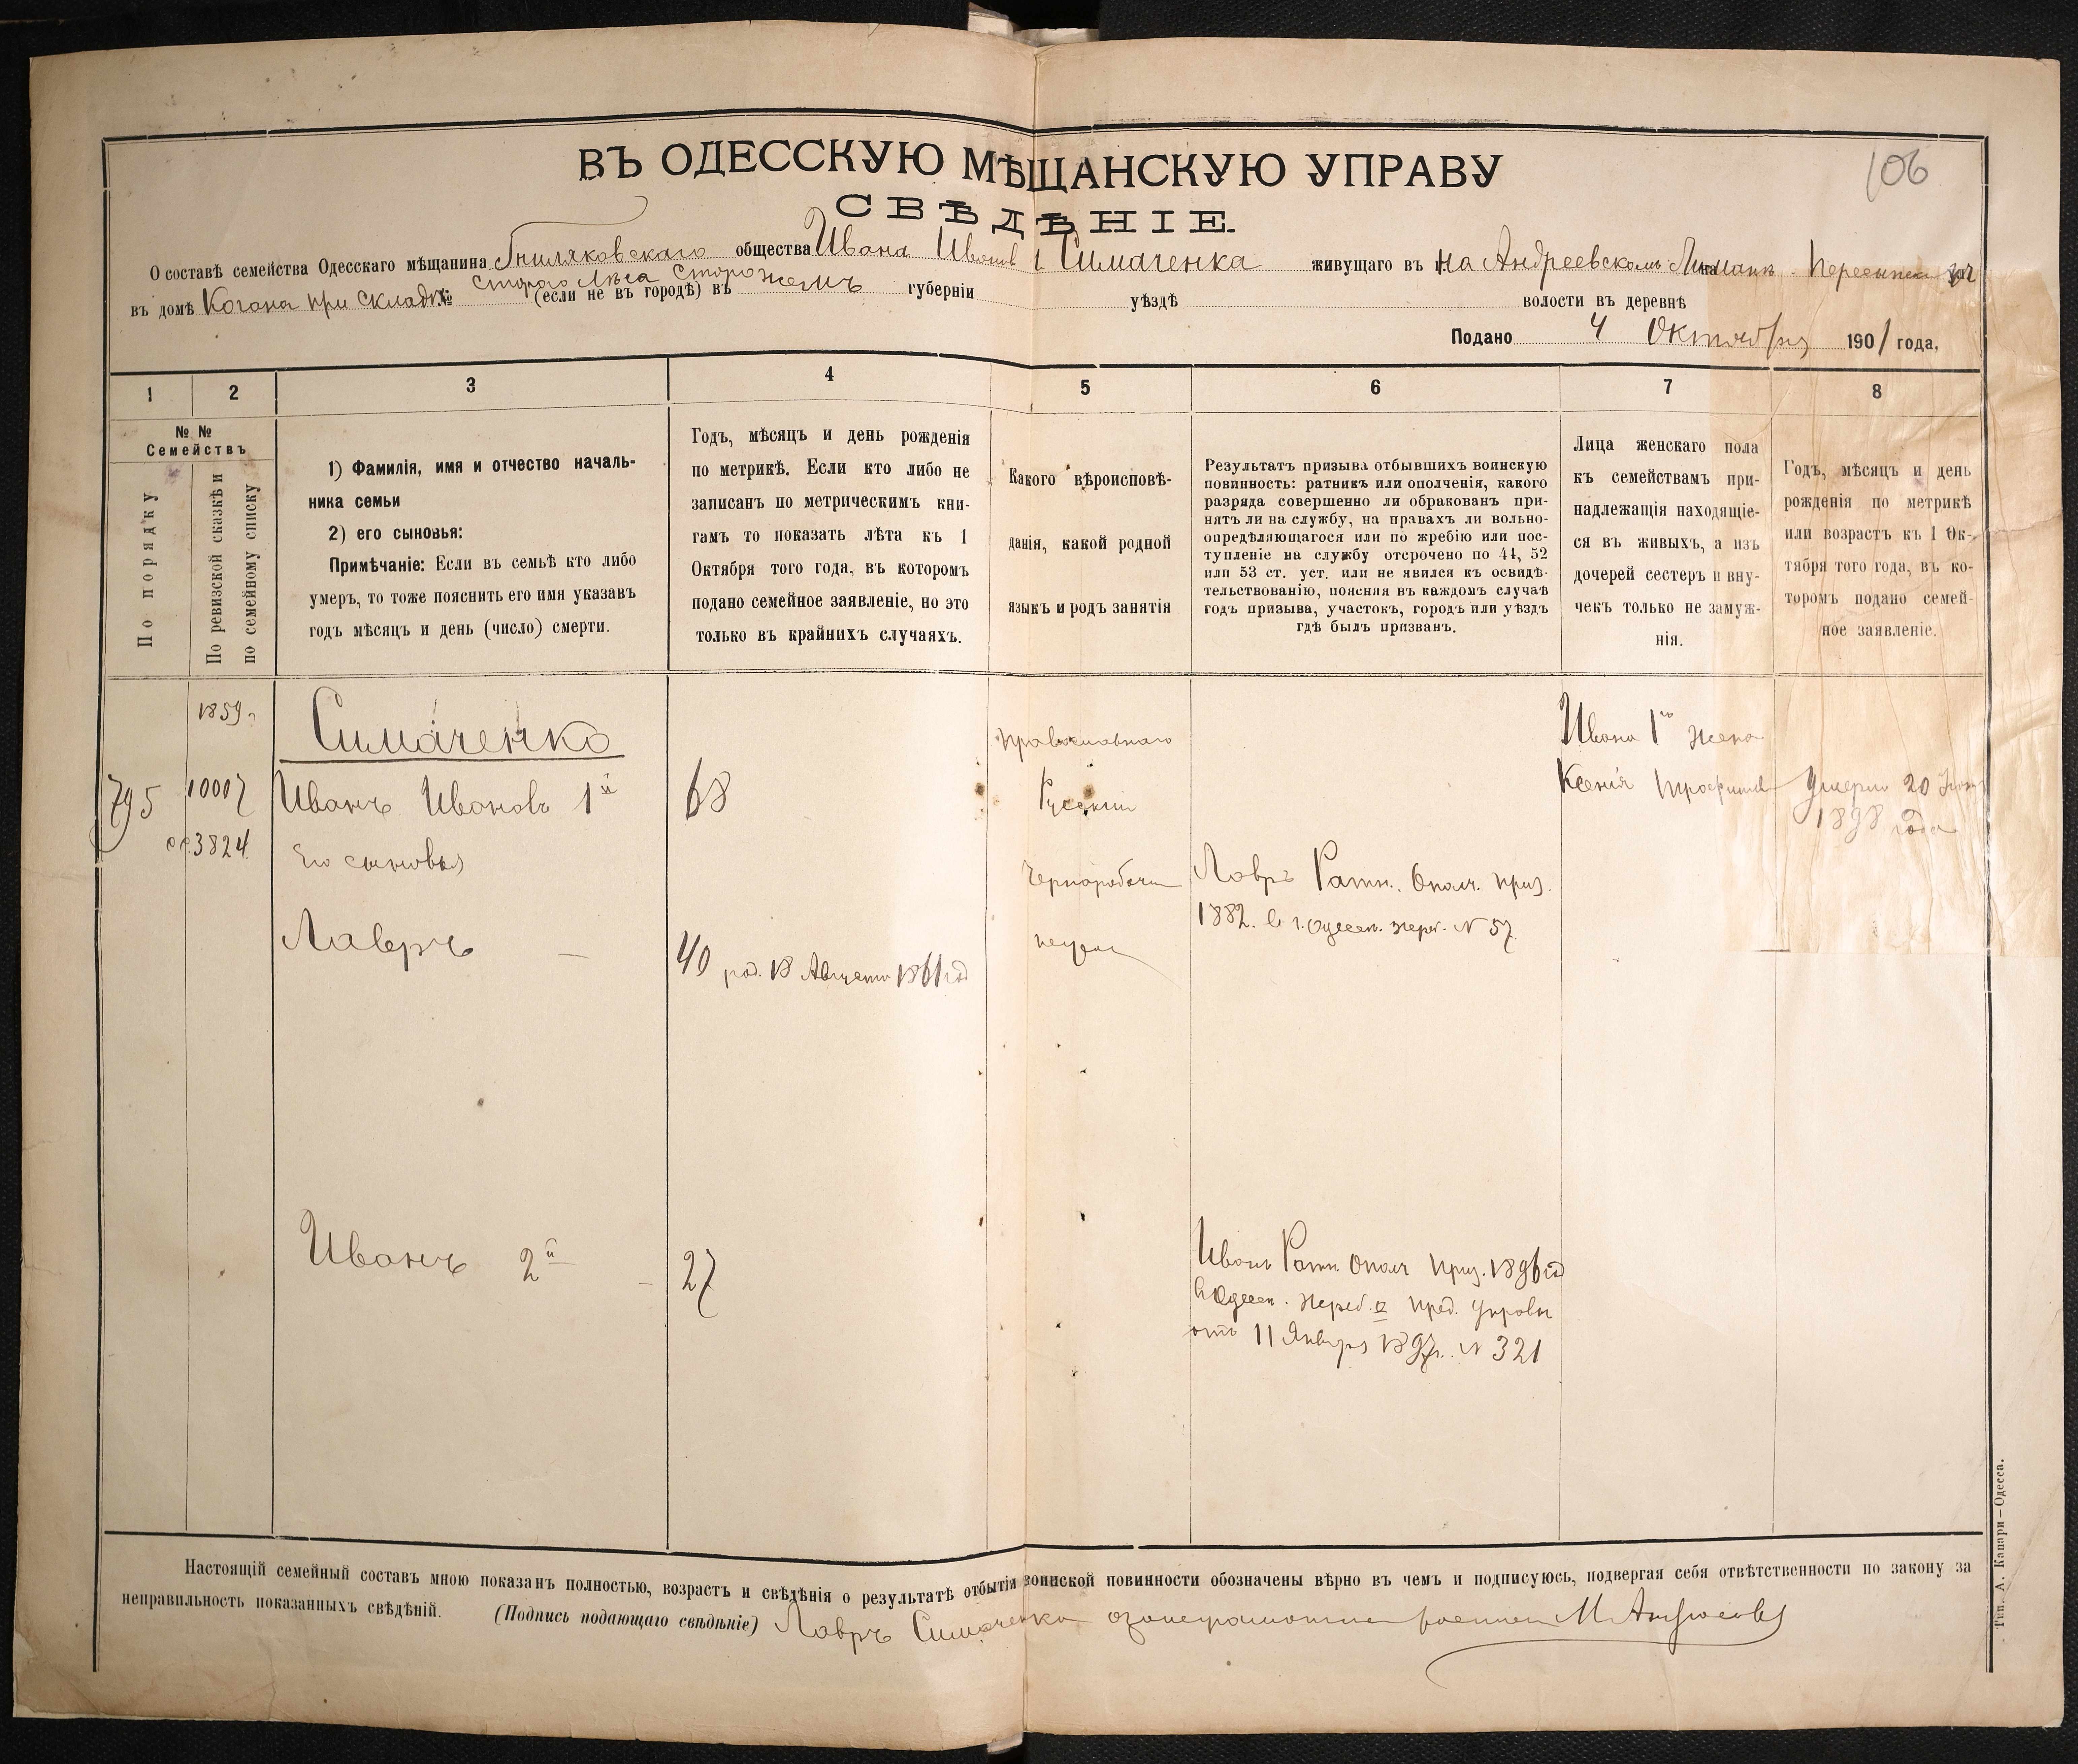 106
ВЪ ОДЕССКУЮ МѢЩАНСКУЮ УПРАВУ
СВѢДѢНІЕ.
О составѣ семейства Одесскаго мѣщанина Гниляковскаго общества Ивана Иванов 1 Симаченка живущаго въ На Андреевскомъ Лиманѣ Пересыпск уч
въ домѣ Когана при складѣ № Старого Лѣса Сторожемъ (если не въ городѣ) въ губерніи уѣздѣ волости въ деревнѣ
Подано 4 Октября 1901 года,
1 2 3 4 5 6 7 8
№ №
Семействъ
По порядку
По ревизской сказкѣ и
по семейному списку
1) Фамилія, имя и отчество началь-
ника семьи
2) его сыновья:
Примѣчаніе: Если въ семьѣ кто либо
умеръ, то тоже пояснить его имя указавъ
годъ мѣсяцъ и день (число) смерти.
Годъ, мѣсяцъ и день рожденія
по метрикѣ. Если кто либо не
записанъ по метрическимъ кни-
гамъ то показать лѣта къ 1
Октября того года, въ которомъ
подано семейное заявленіе, но это
только въ крайнихъ случаяхъ.
Какого вѣроисповѣ-
данія, какой родной
языкъ и родъ занятія
Результатъ призыва отбывшихъ воинскую
повинность: ратникъ или ополченія, какого
разряда совершенно ли обракованъ при-
нятъ ли на службу, на правахъ ли вольно-
опредѣляющагося или по жребію или пос-
тупленіе на службу отсрочено по 44, 52
или 53 ст. уст. или не явился къ освидѣ-
тельствованію, поясняя въ каждомъ случаѣ
годъ призыва, участокъ, городъ или уѣздъ
гдѣ былъ призванъ.
Лица женскаго пола
къ семействамъ при-
надлежащія находящіе-
ся въ живыхъ, а изъ
дочерей сестеръ и вну-
чекъ только не замуж-
нія.
Годъ, мѣсяцъ и день
рожденія по метрикѣ
или возрастъ къ 1 Ок-
тября того года, въ ко-
торомъ подано семей-
ное заявленіе.
1859 г.
Симаченко
795
10007
3824
Иванъ Ивановъ 1й
68
Его сыновья
Лавръ —
40 род. 18 Августа 1861 год
Православнаго
Русскій
Чернорабочи
Лавръ Ратн. Ополч. приз.
1882. в г. Одесск. жере. № 57
Ивана 1го жена
Ксенія Трофимов
Умерла 20 Іюн
1898 года
Иванъ 2й —
27
Иванъ Ратн. Ополч приз. 1896 год
в Одесск. жереб. и пред. Управы
отъ 11 Января 1897г. № 321
Настоящій семейный составъ мною показанъ полностью, возрастъ и свѣдѣнія о результатѣ отбытія воинской повинности обозначены вѣрно въ чемъ и подписуюсь, подвергая себя отвѣтственности по закону за
неправильность показанныхъ свѣдѣній. (Подпись подающаго свѣдѣніе) Лавръ Симаченко
Тип. А. Капари—Одесса.